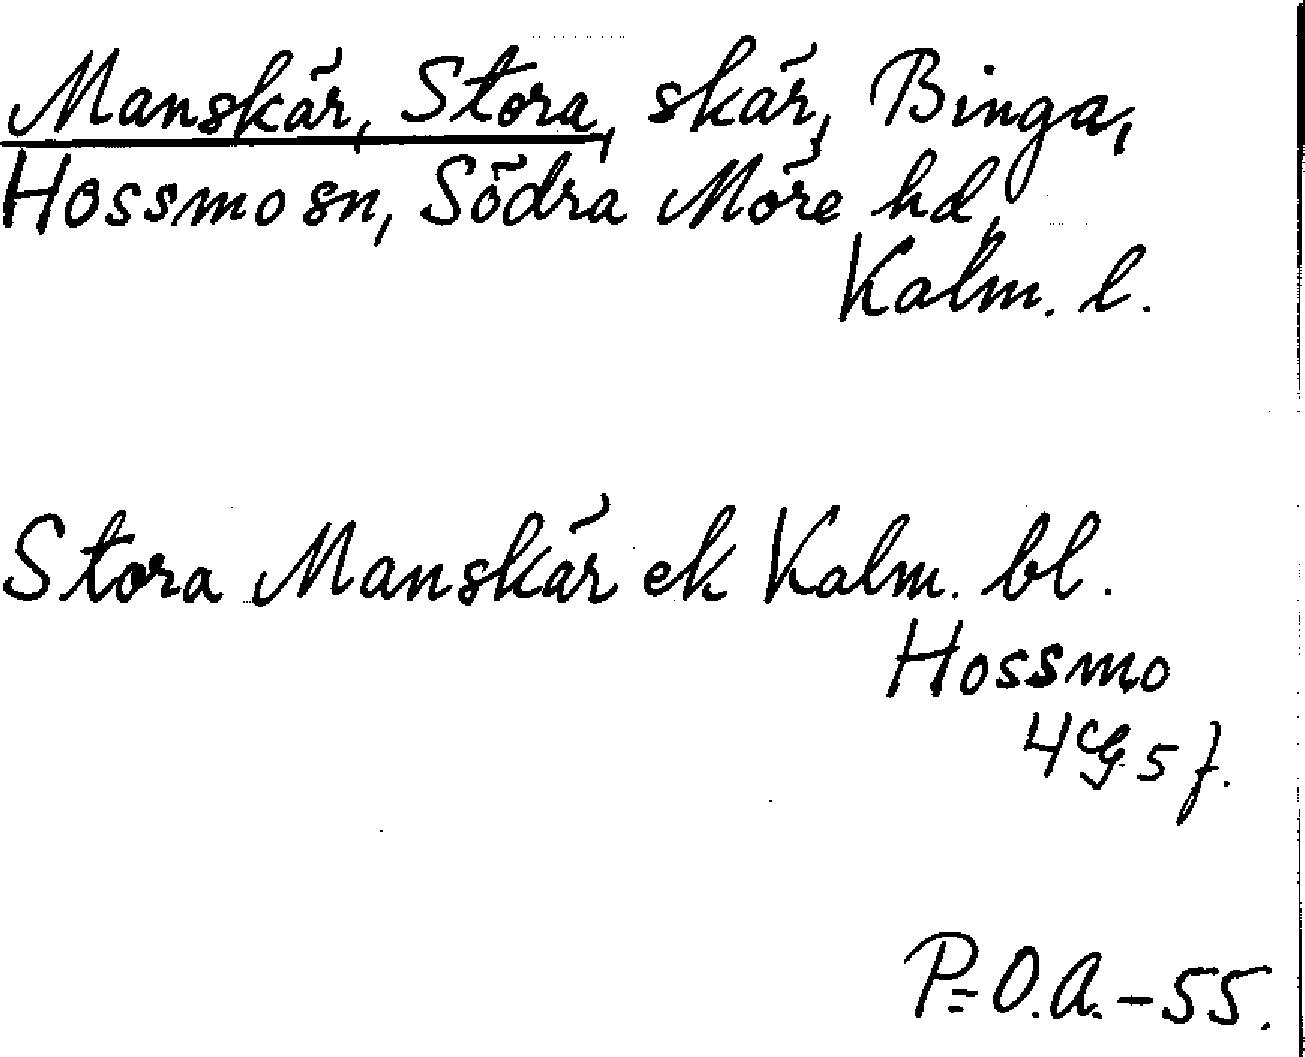 Manskär, Stora, skär, Binga,
Hossmo sn, Södra Möre hd,
Kalm. l.
Stora Manskär ek Kalm. bl.
Hossmo
4G5f.
P=O.A.-55.